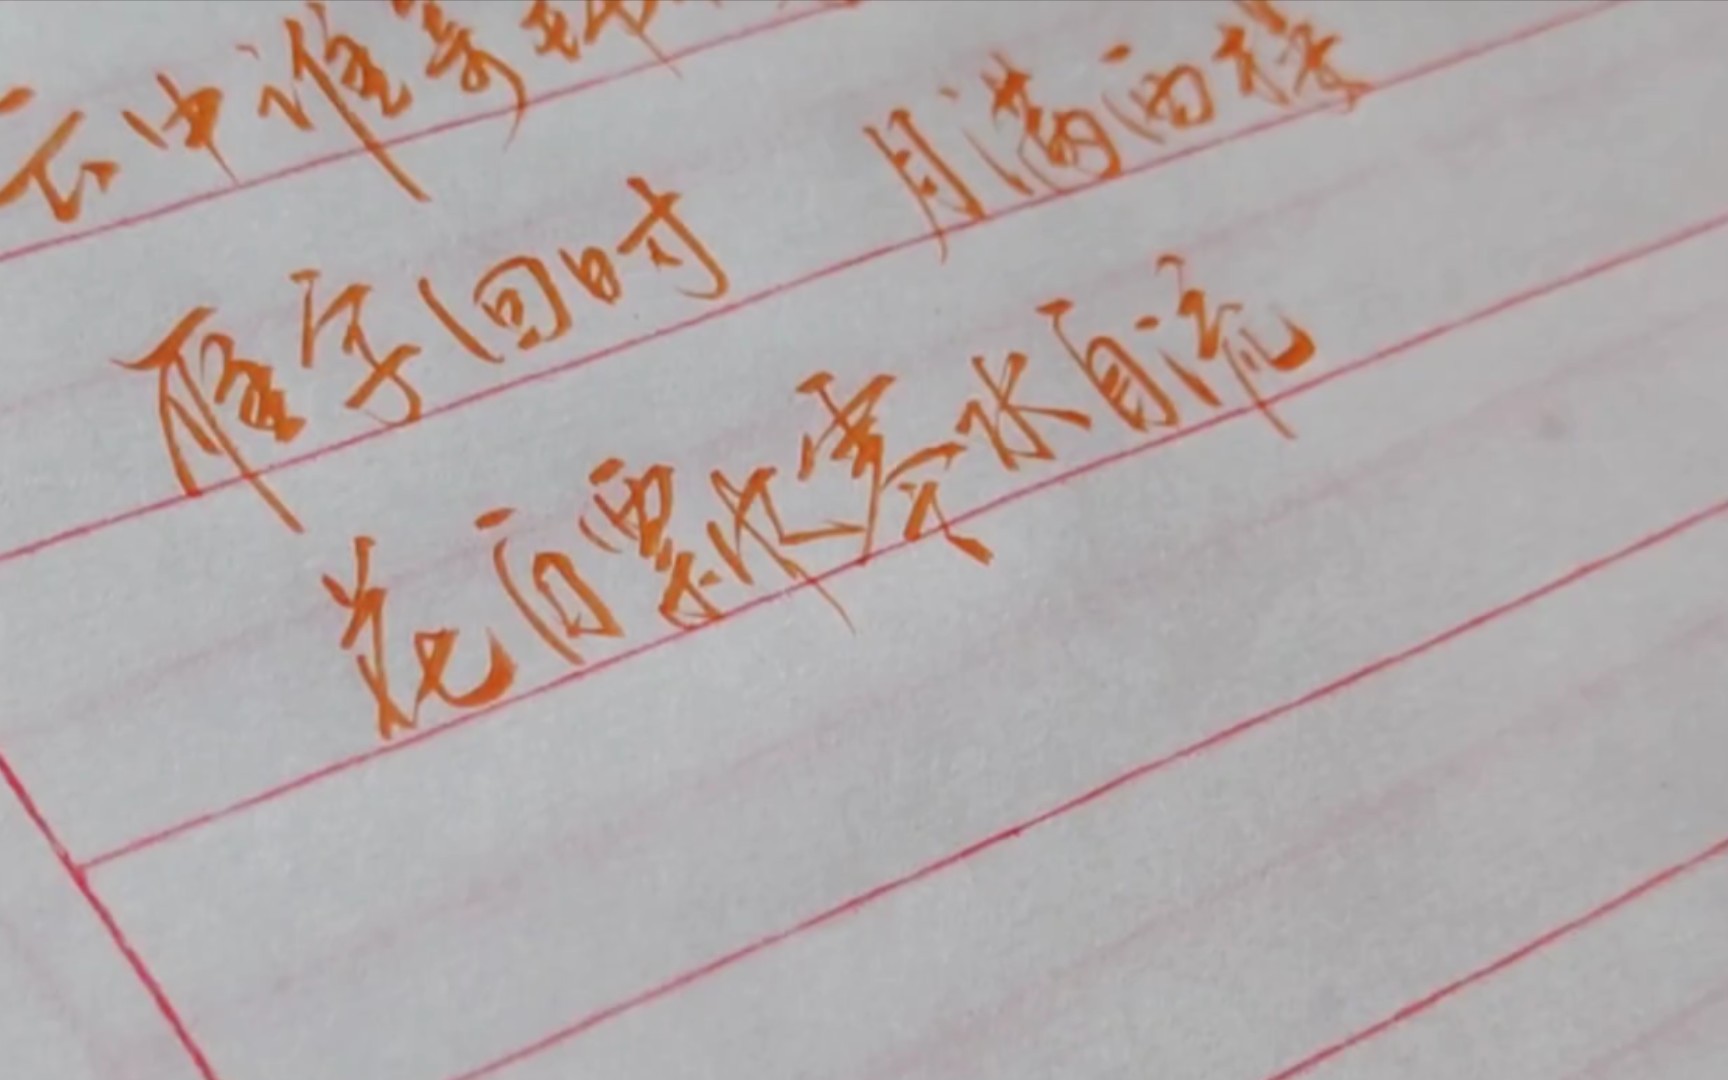 云中谁寄锦
雁字回时 月满西楼
花自飘零水自流